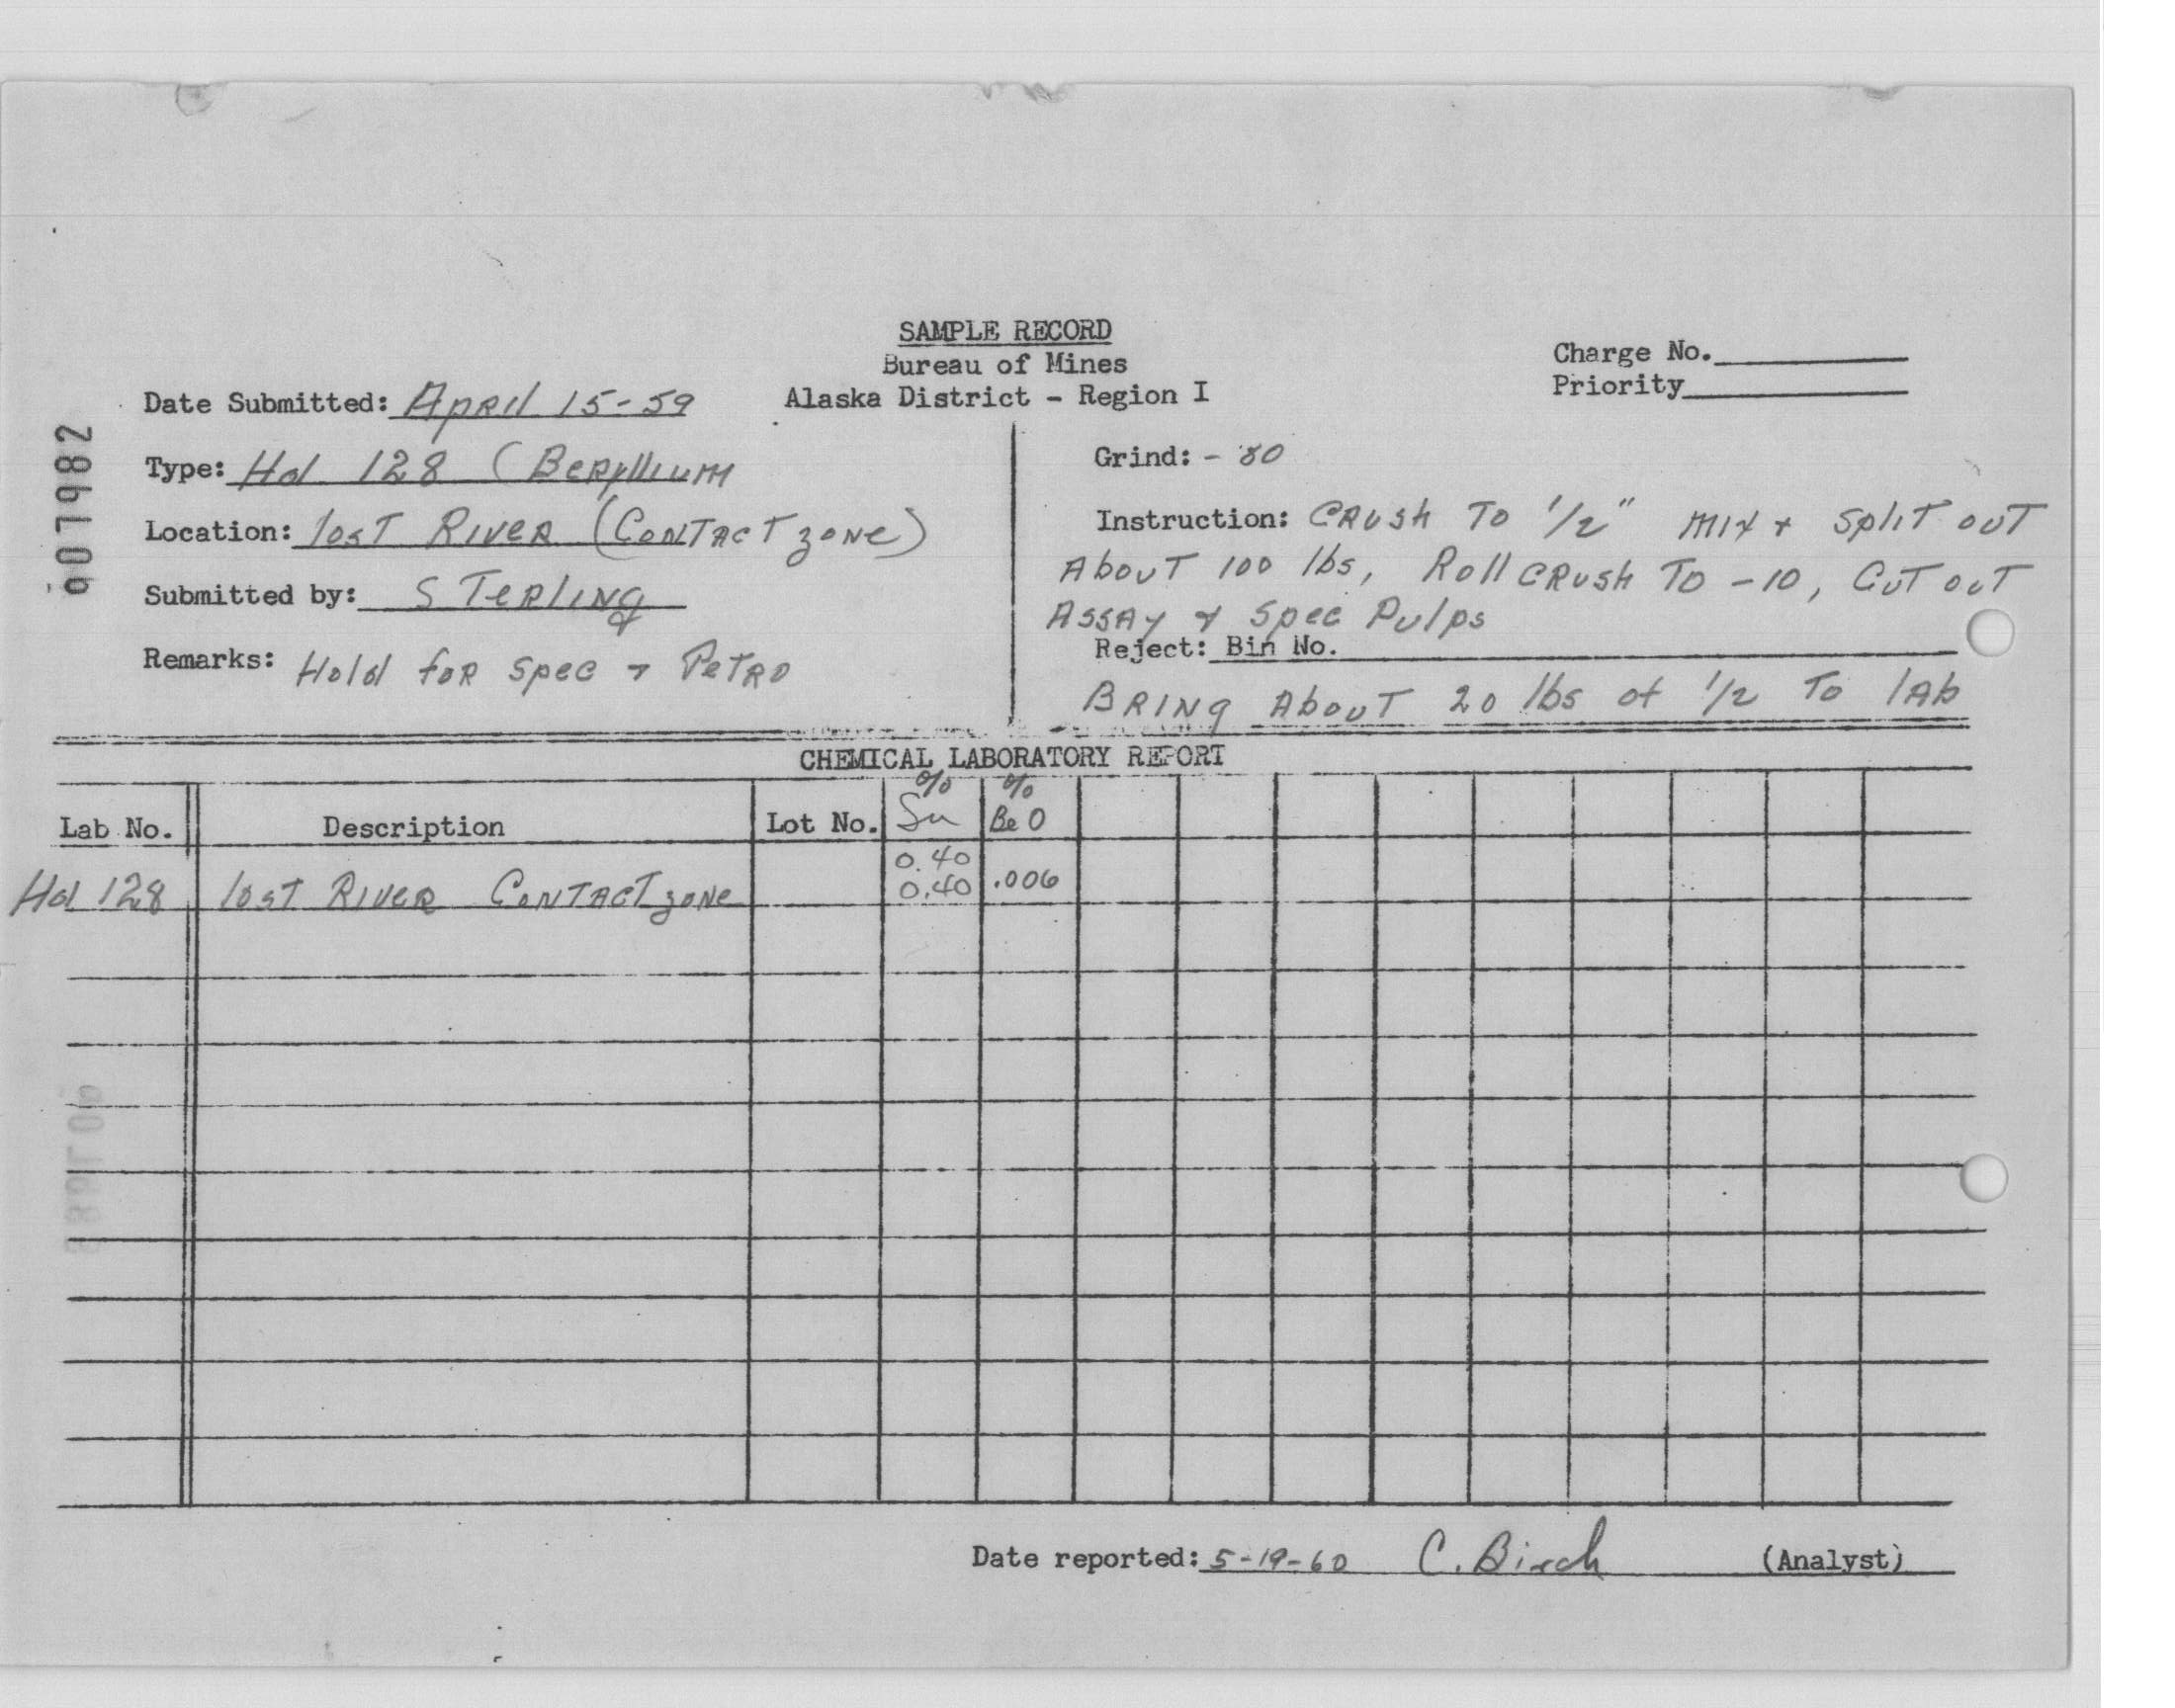 SAMPLE RECORD
Bureau of Mines
Alaska District - Region I
Charge No.
Priority
907982
Date Submitted: April 15-59
Type: Hd 128 (Beryllium
Location: lost River (Contact zone)
Submitted by: Sterling
Remarks: Hold for spec + Petro
Grind: - 80
Instruction: Crush to 1/2" mix + split out
About 100 lbs, Roll crush to -10, Cut out
Assay + Spec Pulps
Reject: Bin No.
Bring About 20 lbs of 1/2 to lab
CHEMICAL LABORATORY REPORT
Lab No. Description Lot No. % Sn % BeO
0.40
Hd 128 lost River Contact zone 0.40 .006
Date reported: 5-19-60 C. Birch (Analyst)